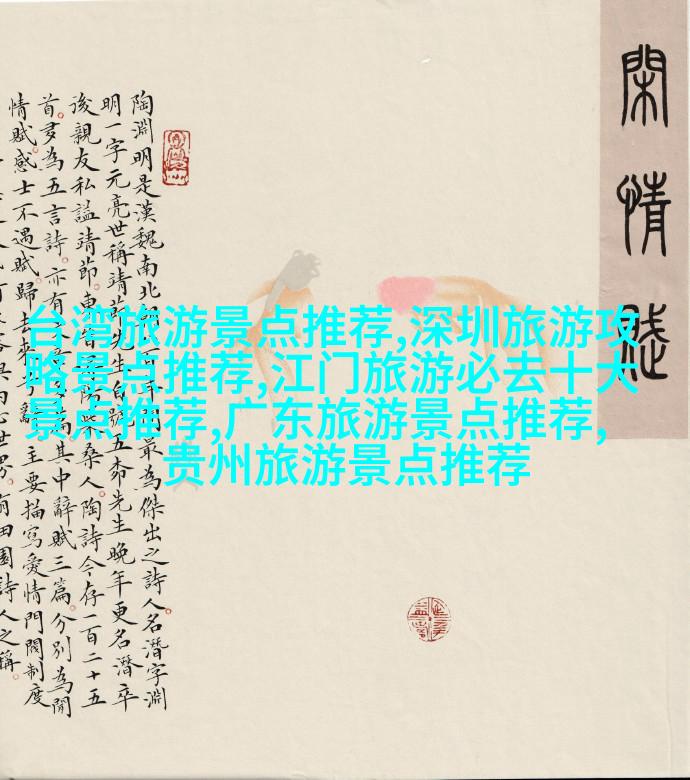 閑情賦
陶淵明是漢魏南北 最為傑出之詩人。名潛字淵
明一字元亮世稱靖節先生自號五柳先生晚年更名潛卒
後親友私謚靖節。東 陽柴桑人。陶詩今存一百二十五
首。多為五言詩。亦有 其中辭賦三篇。分別為閒
情賦。感士不遇賦。歸去來兮辭。主要描寫愛情門閥制度
田園詩人之稱。
台湾旅游景点推荐,深圳旅游攻
略景点推荐,江门旅游必去十大
景点推荐,广东旅游景点推荐,
贵州旅游景点推荐